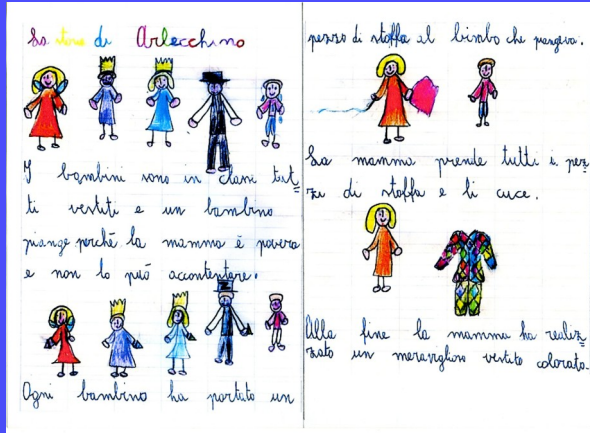 La storia di Arlecchino
I bambini sono in classe tut=
ti vestiti e un bambino
piange perché la mamma è povera
e non lo può accontentare.
Ogni bambino ha portato un
pezzo di stoffa al bimbo che piangeva.
La mamma prende tutti i pez=
zi di stoffa e li cuce.
Alla fine la mamma ha realiz=
zato un meraviglioso vestito colorato.